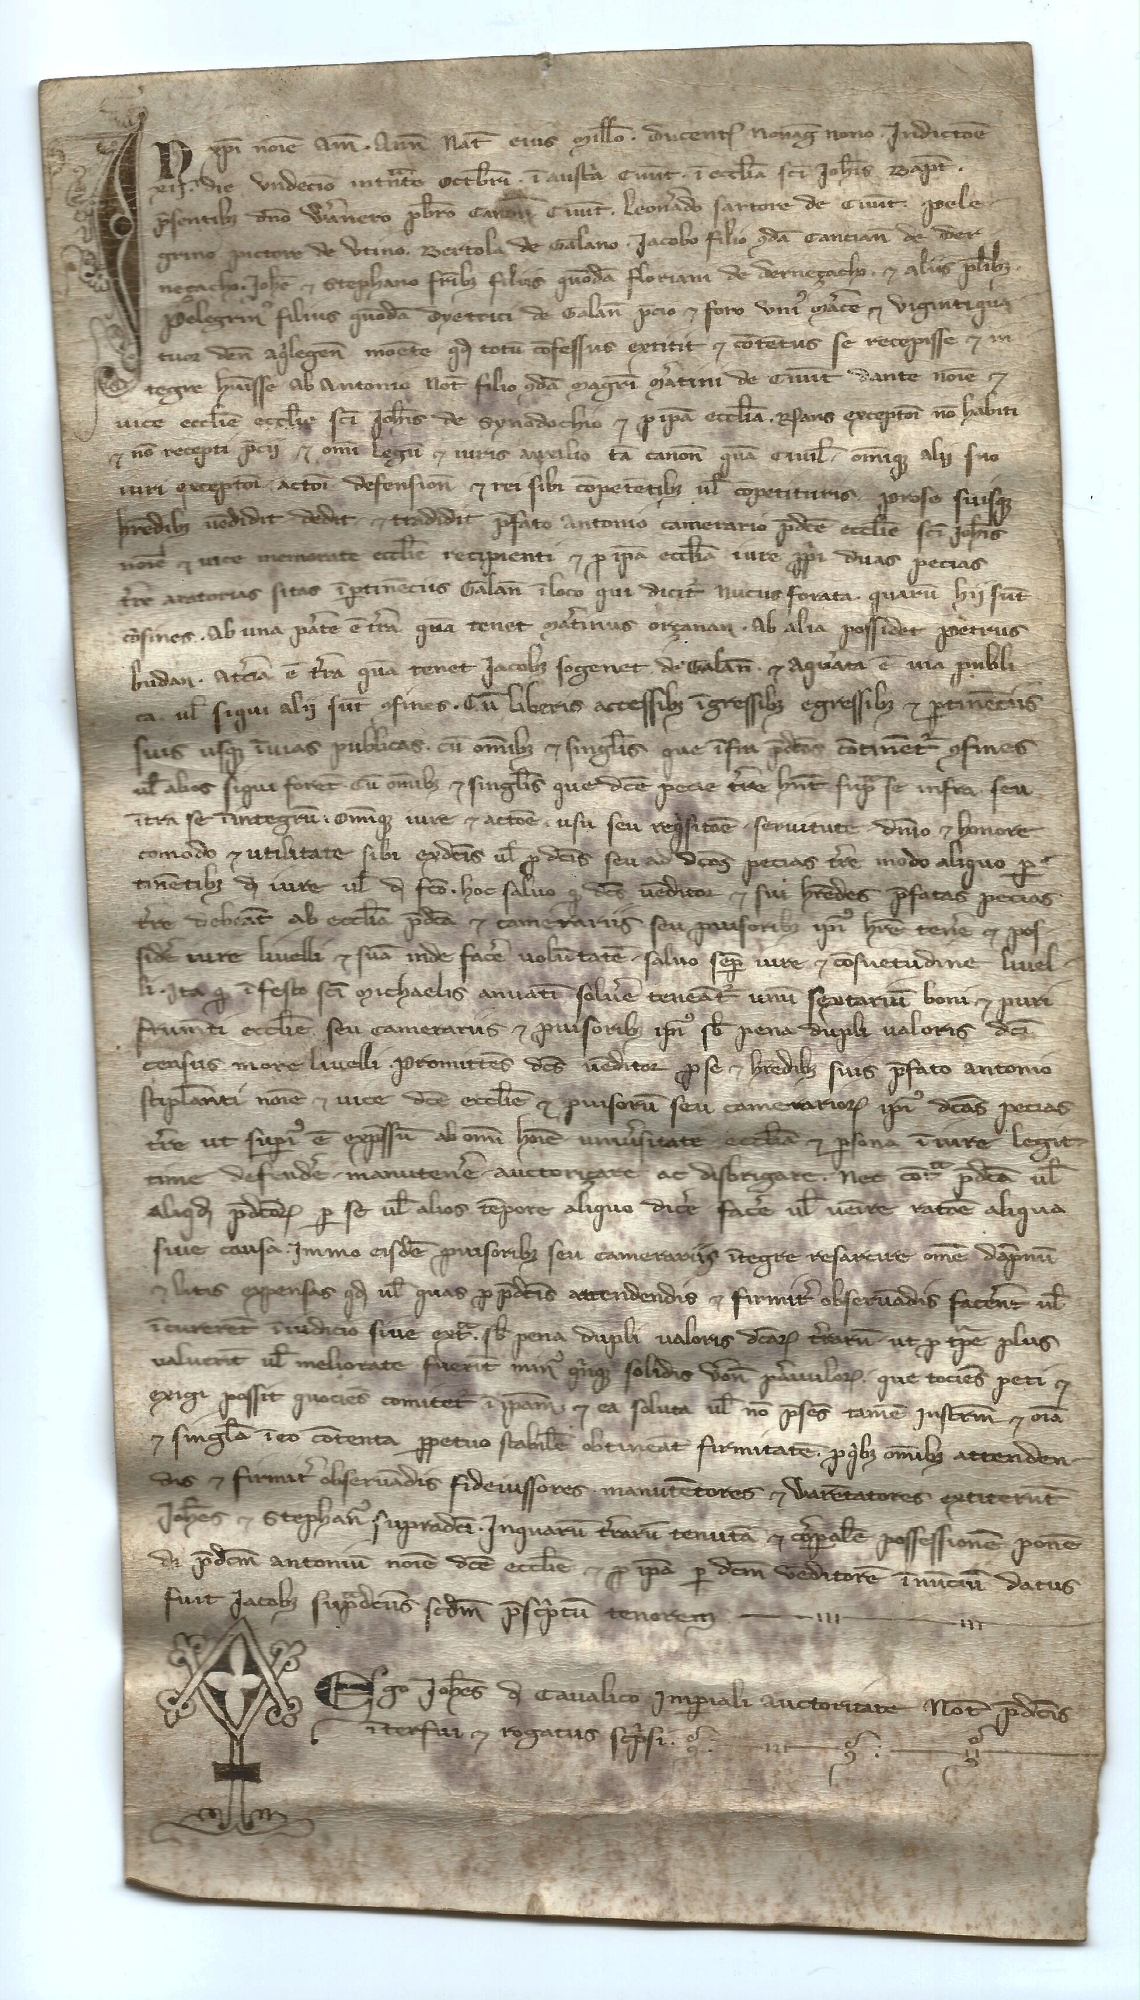 In xpi noīe Am̄. Ann̄ Nat̄ eius Mill̄o. ducent̄ Nonaḡ nono. Indictōe
xij. die undecīo intrāte Octōbr̄. ī austa Ciuit̄. ī eccl̄ia sc̄i Joh̄is Bapt̄.
p̄sentib; dn̄o Warnero pb̄ro Canon̄ Ciuit̄. Leonardo sartore de Ciuit̄. Pele
grino pictore de Utino. Bertola de Galano. Jacobo filio qd̄a Cancian̄ de Der
neçacho. Joh̄e ⁊ Stephano fr̄ib; filiis quōda Floriani de Derneçacho. ⁊ aliis pl̄ib;.
Pelegrin⁹ filius quōda Dyetrici de Galan̄ p̄cio ⁊ foro uni⁹ marce ⁊ vigintiqua
tuor den̄ Aq̄legen̄ monēte qd̄ totū cōfessus extitit ⁊ cōtētus se recepisse ⁊ in
tegre h̄uisse ab Antonio Not̄ filio qd̄a magr̄i Martini de Ciuit̄ dante noīe ⁊
uice eccl̄ie eccl̄ie sc̄i Joh̄is de Synodochio ⁊ p ip̄a eccl̄ia. Rn̄ans exceptōi nō habiti
⁊ nō recepti p̄cij ⁊ om̄i legū ⁊ iuris auxilio tā canon̄ quā Ciuil̄. om̄iq; alij suo
iuri exceptōi actōi defensiōn ⁊ rei sibi cōpetētib; ul̄ cōpetituris. p se suisq;
h̄redib; uēdidit dedit ⁊ tradidit p̄fato Antonio camerario p̄dc̄e eccl̄ie sc̄i Joh̄is
noīe ⁊ uice memorate eccl̄ie recipienti ⁊ p ip̄a eccl̄ia iure pp̄i duas pecias
t̄re aratorias sitas ī ptinēciis Galan̄ ī loco qui dicit̄ Nucus forata. quarū hij sūt
cōfines. Ab una pāte ē t̄ra quā tenet Martinus orzanan. Ab alia possidet Petrus
budan. A tc̄ia ē t̄ra quā tenet Jacob; sogenet de Galan̄. ⁊ A qr̄ta ē uia publi
ca. ul̄ siqui alij sūt 9fines. Cū liberis accessib; īgressib; egressib; ⁊ ptinēciis
suis usq; ī uias publicas. cū om̄ib; ⁊ singl̄is que īfra p̄dc̄os cōtinēt̄ 9fines
ul̄ alios siqui forēt. Cū om̄ib; ⁊ singl̄is que dc̄e pecie t̄re h̄nt sup̄ se infra seu
ītra se ī integrū. Om̄iq; iure ⁊ actōe. usu seu req̄sitōe. seruitute. dn̄io ⁊ honore
comodo ⁊ utilitate sibi ex dc̄is ul̄ p dc̄is seu ad dc̄as pecias t̄re modo aliquo p
tinētib; d̄ iure ul̄ d̄ fc̄o. hoc saluo q̄ dc̄s uēditor ⁊ sui h̄redes p̄fatas pecias
t̄re debeāt ab eccl̄ia p̄dc̄a ⁊ camerariis seu puisorib; ip̄i⁹ h̄re tenēr ⁊ pos
sidēr iure liuelli ⁊ suā inde facēr uolūtatē. saluo sēp iure ⁊ cōsuetudine liuel
li. Ita q̄ ī festo sc̄i Michaelis annuatī soluēr teneāt̄ unū sextariū boni ⁊ puri
frum̄ti eccl̄ie seu camerariis ⁊ puisorib; ip̄i⁹ sb̄ pena dupli ualoris dc̄i
census more liuelli. Promittēs dc̄s uēditor p se ⁊ h̄redib; suis p̄fato Antonio
stipl̄anti noīe ⁊ uice dc̄e eccl̄ie ⁊ puisorū seu camerarioꝝ ip̄i⁹ dc̄as pecias
t̄re ut supi⁹ ē exp̄ssū ab om̄i hoīe uniūsitate eccl̄ia ⁊ psona ī iure legit
time defendēr. manutenēr. auctorizare ac disbrigare. Nec cōtra p̄dc̄a ul̄
aliqd̄ p̄dc̄oꝝ p se ul̄ alios tēpore aliquo dicēr facēr ul̄ uenire ratōe aliqua
siue causa. Immo eisdē puisorib; seu camerariis ītegre resarcire om̄e dāpnū
⁊ litis expensas qd̄ ul̄ quas p p̄dc̄is attendendis ⁊ firmit̄ obseruādis facerēt ul̄
īcurerēt ī iudicio siue ext̄. sb̄ pena dupli ualoris dc̄aꝝ t̄rarū ut p tp̄re plus
ualuerīt ul̄ meliorate fuerīt min⁹ q̄nq; solidis Verōn paruuloꝝ. que tociēs peti ⁊
exigi possit quociēs comitet̄ ī ip̄am ⁊ ea soluta ul̄ nō p̄ses tamē Instrm̄ ⁊ oīa
⁊ singl̄a ī eo cōtenta ppetuo stabilē obtineat firmitatē. p q̄b; om̄ib; attenden
dis ⁊ firmit̄ obseruādis fideiussores manutētores ⁊ warētatores extiterūt
Joh̄es ⁊ Stephan⁹ supradc̄i. In quarū t̄rarū tenutā ⁊ corpalē possessionē ponē
di p̄dc̄m Antoniū noīe dc̄e eccl̄ie ⁊ p ip̄a p dc̄m uēditorē ī nūciū datus
fuit Jacob; sup̄dc̄us sc̄dm p̄scp̄tū tenorem
Ego Joh̄es d̄ Caualico Impiali auctoritate Not̄ p̄dc̄is
īterfui ⁊ rogatus scp̄si.